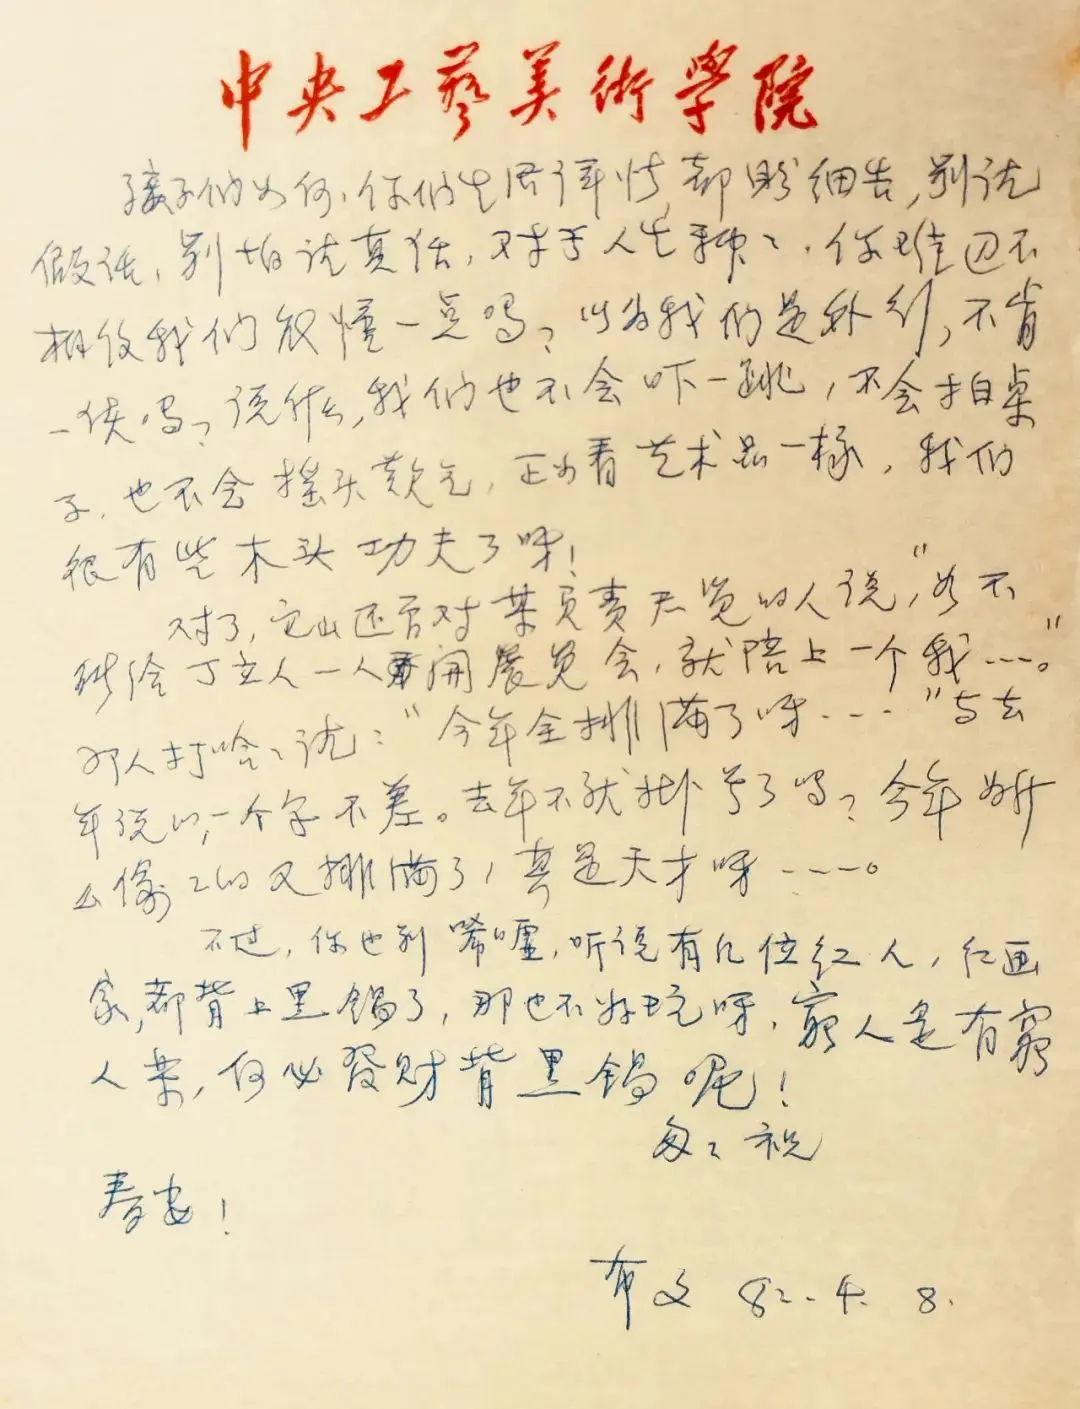 中央工藝美術學院
孩子们如何，你们生活详情，都盼细告，别说
假话，别怕说真话，对于人生种々，你难道不
相信我们很懂一点吗？以为我们是外行，不肯
一谈吗？说什么，我们也不会吓一跳，不会拍桌
子，也不会摇头叹气，正如看艺术品一样，我们
很有些木头功夫了呀！
对了，它山还曾对某负责展览的人说，“如不
能给丁立人一人开展览会，就陪上一个我……。”
那人打哈々说：“今年全排满了呀……”与去
年说的，一个字不差。去年不就挂号了吗？今年为什
么偷々的又排满了，真是天才呀……。
不过，你也别唏嘘，听说有几位红人，红画
家，都背上黑锅了，那也不好玩呀，窮人是有窮
人樂，何必發财背黑锅呢！
匆々祝
春安！
布文 82.4.8.